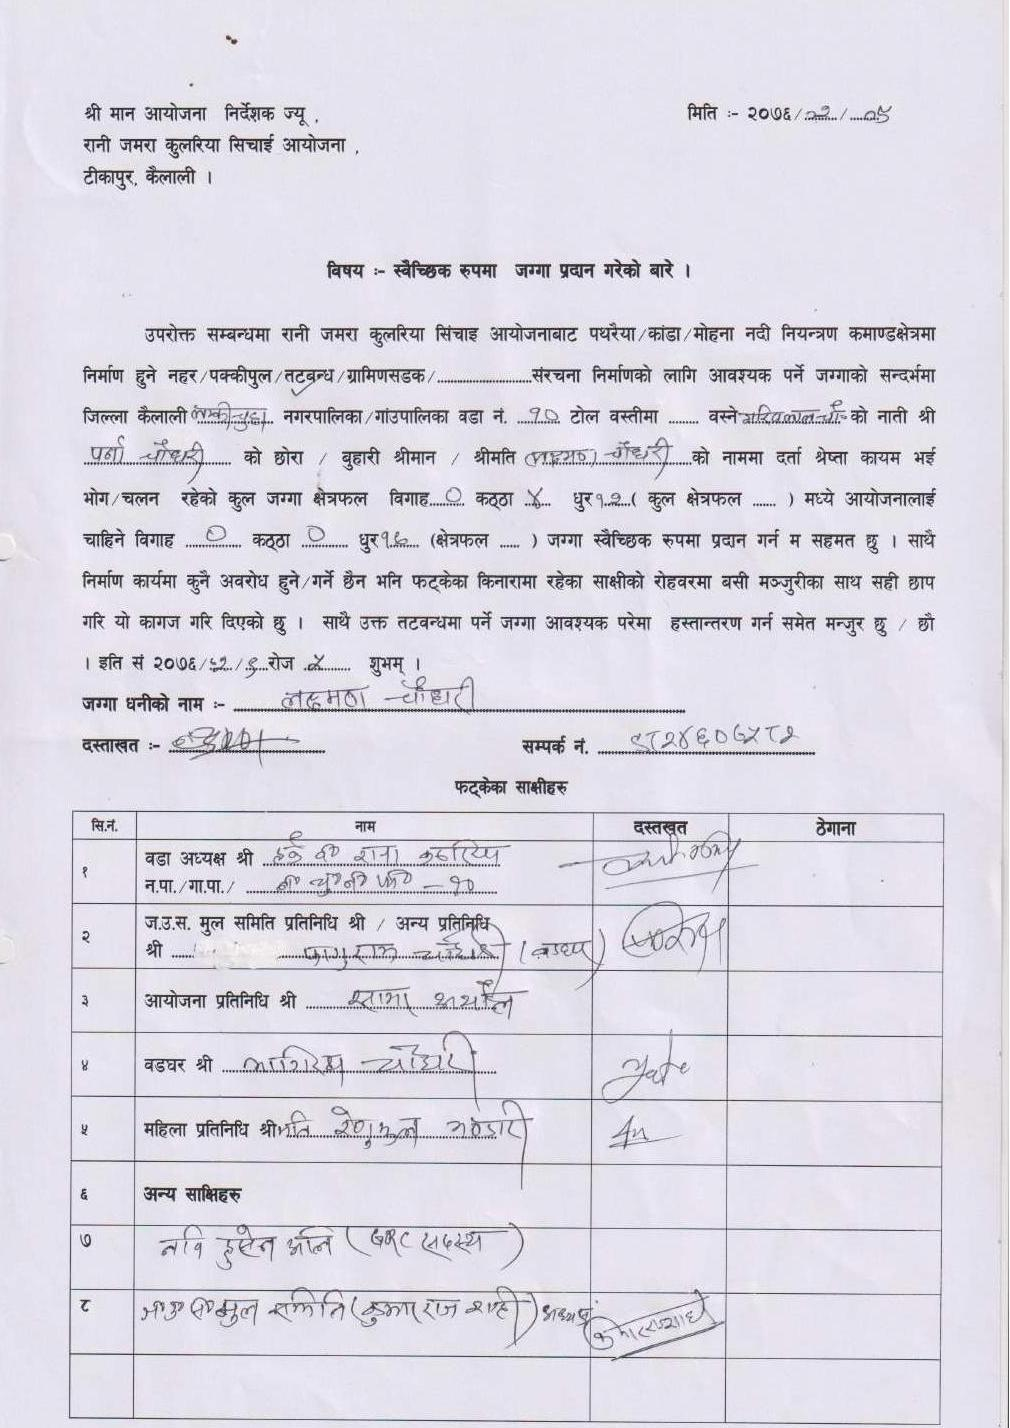 श्री मान आयोजना निर्देशक ज्यू ,
मिति :- २०७६/१२/ ०५
रानी जमरा कुलरिया सिचाई आयोजना ,
टीकापुर, कैलाली ।
विषय :- स्वैच्छिक रुपमा जग्गा प्रदान गरेको बारे ।
उपरोक्त सम्बन्धमा रानी जमरा कुलरिया सिंचाइ आयोजनाबाट पथरैया/कांडा/मोहना नदी नियन्त्रण कमाण्डक्षेत्रमा
निर्माण हुने नहर/पक्कीपुल/तटबन्ध/ग्रामिणसडक/........................संरचना निर्माणको लागि आवश्यक पर्ने जग्गाको सन्दर्भमा
जिल्ला कैलाली लम्कीचुहा नगरपालिका/गांउपालिका वडा नं. १० टोल वस्तीमा ........ वस्ने को नाती श्री
चौधरी को छोरा / बुहारी श्रीमान / श्रीमति लक्ष्मण चौधरी को नाममा दर्ता श्रेष्ता कायम भई
भोग/चलन रहेको कुल जग्गा क्षेत्रफल विगाह ० कठ्ठा ४ धुर १२ ( कुल क्षेत्रफल ...... ) मध्ये आयोजनालाई
चाहिने विगाह ० कठ्ठा ० धुर १६ (क्षेत्रफल ..... ) जग्गा स्वैच्छिक रुपमा प्रदान गर्न म सहमत छु । साथै
निर्माण कार्यमा कुनै अवरोध हुने/गर्ने छैन भनि फट्केका किनारामा रहेका साक्षीको रोहवरमा बसी मञ्जुरीका साथ सही छाप
गरि यो कागज गरि दिएको छु । साथै उक्त तटबन्धमा पर्ने जग्गा आवश्यक परेमा हस्तान्तरण गर्न समेत मन्जुर छु / छौ
। इति सं २०७६/१२/ ५ रोज ५ शुभम् ।
जग्गा धनीको नाम :- लक्ष्मण चौधरी
दस्ताखत :-
सम्पर्क नं.
फट्केका साक्षीहरु
सि.नं. नाम दस्तखत ठेगाना
१ वडा अध्यक्ष श्री
न.पा./गा.पा./ १०
२ ज.उ.स. मुल समिति प्रतिनिधि श्री / अन्य प्रतिनिधि
श्री फागुराम चौधरी
३ आयोजना प्रतिनिधि श्री
४ वडघर श्री चौधरी
५ महिला प्रतिनिधि श्रीमति
६ अन्य साक्षिहरु
७ नवि हुसेन अलि (GRC सदस्य)
८ ज॰उ॰स॰ मुल समिति (कुमार राज शाही) अध्यक्ष